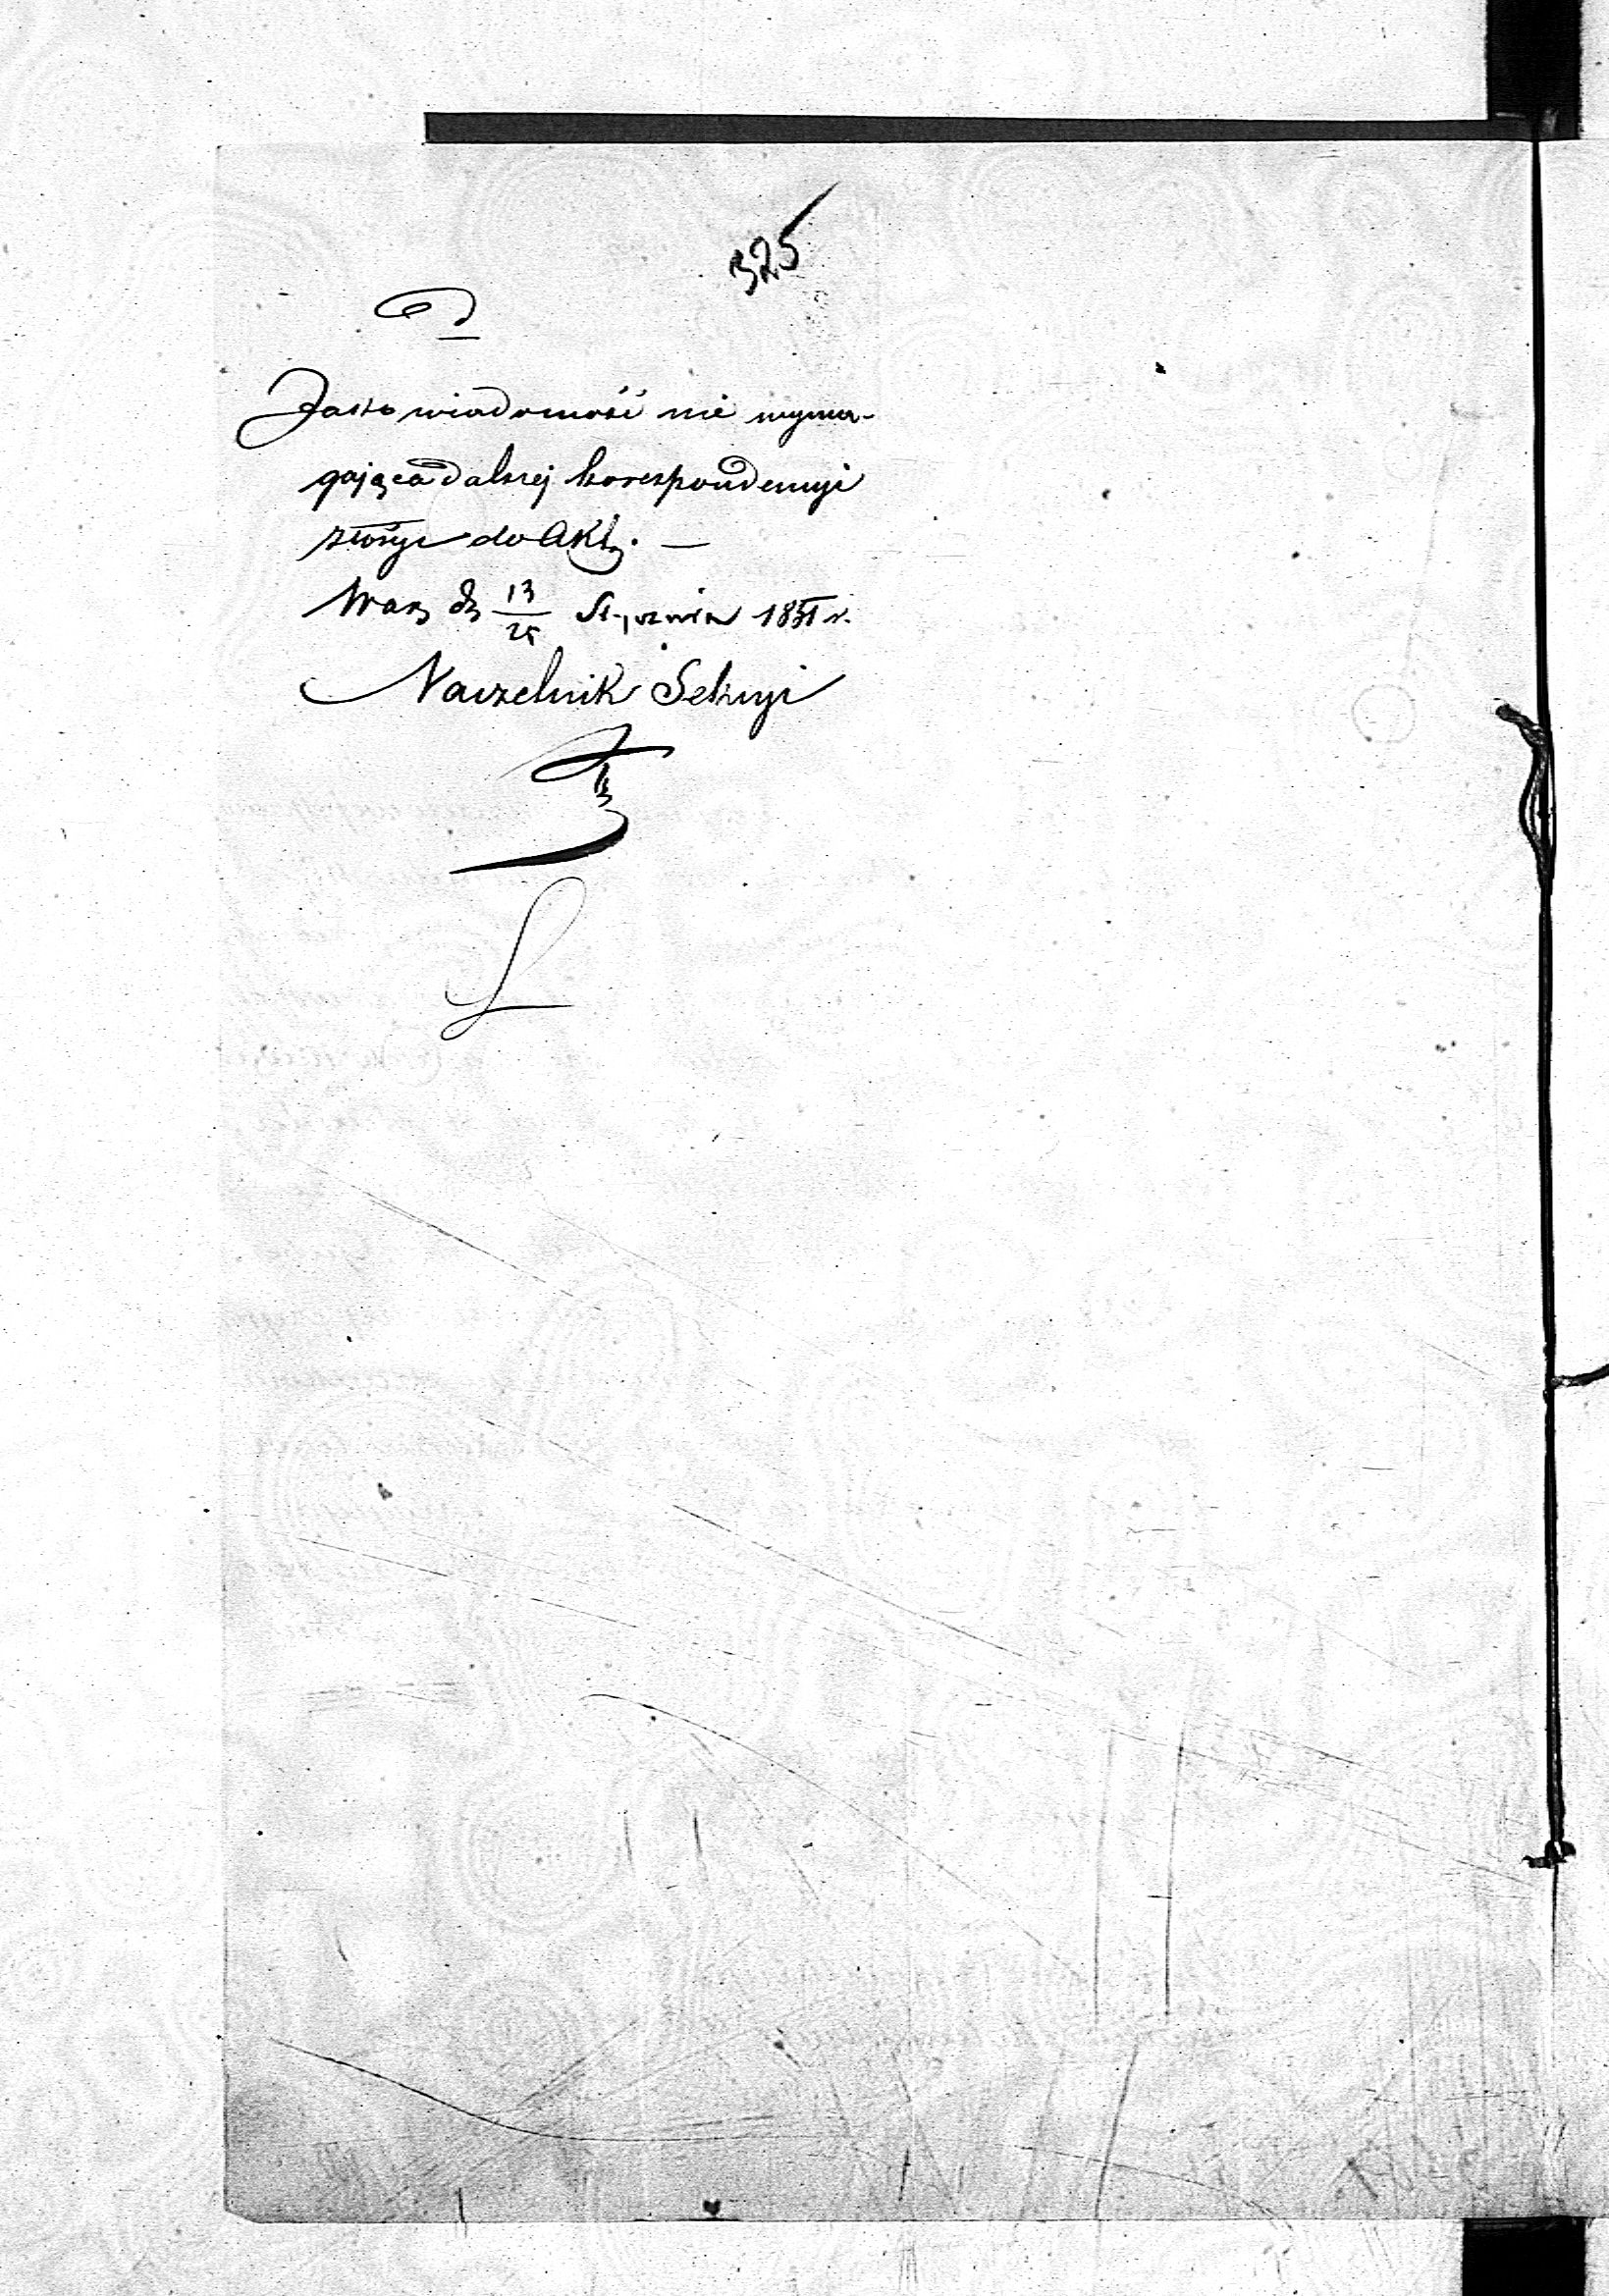 325
Jako wiadomość nie wyma-
gająca dalszej korespondencyi
złożyć do Akt. —
Warz d 13/25 Stycznia 1851 r.
Naczelnik Sekcyi